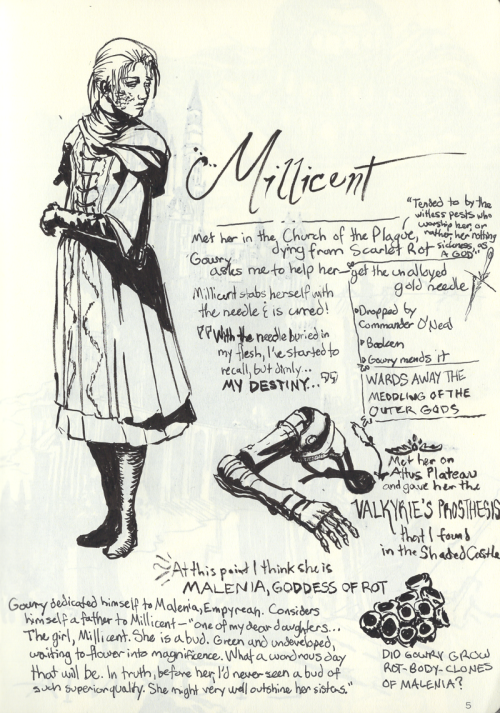 Millicent
"Tended to by the
witless pests who
worship her, or
rather, her rotting
sickness, as
a GOD"
Met her in the Church of the Plague,
dying from Scarlet Rot
Gowry
asks me to help her—get the unalloyed
gold needle
Dropped by
Commander O'Neal
Broken
Gowry mends it
WARDS AWAY THE
MEDDLING OF THE
OUTER GODS
Millicent stabs herself with
the needle & is cured!
"With the needle buried in
my flesh, I've started to
recall, but dimly...
MY DESTINY..."
Met her on
Altus Plateau
and gave her the
VALKYRIE'S PROSTHESIS
that I found
in the Shaded Castle
At this point I think she is
MALENIA, GODDESS OF ROT
Gowry dedicated himself to Malenia, Empyrean. Considers
himself a father to Millicent—"one of my dear daughters...
The girl, Millicent. She is a bud. Green and undeveloped,
waiting to flower into magnificence. What a wondrous day
that will be. In truth, before her, I'd never seen a bud of
such superior quality. She might very well outshine her sisters."
DID GOWRY GROW
ROT-BODY-CLONES
OF MALENIA?
5